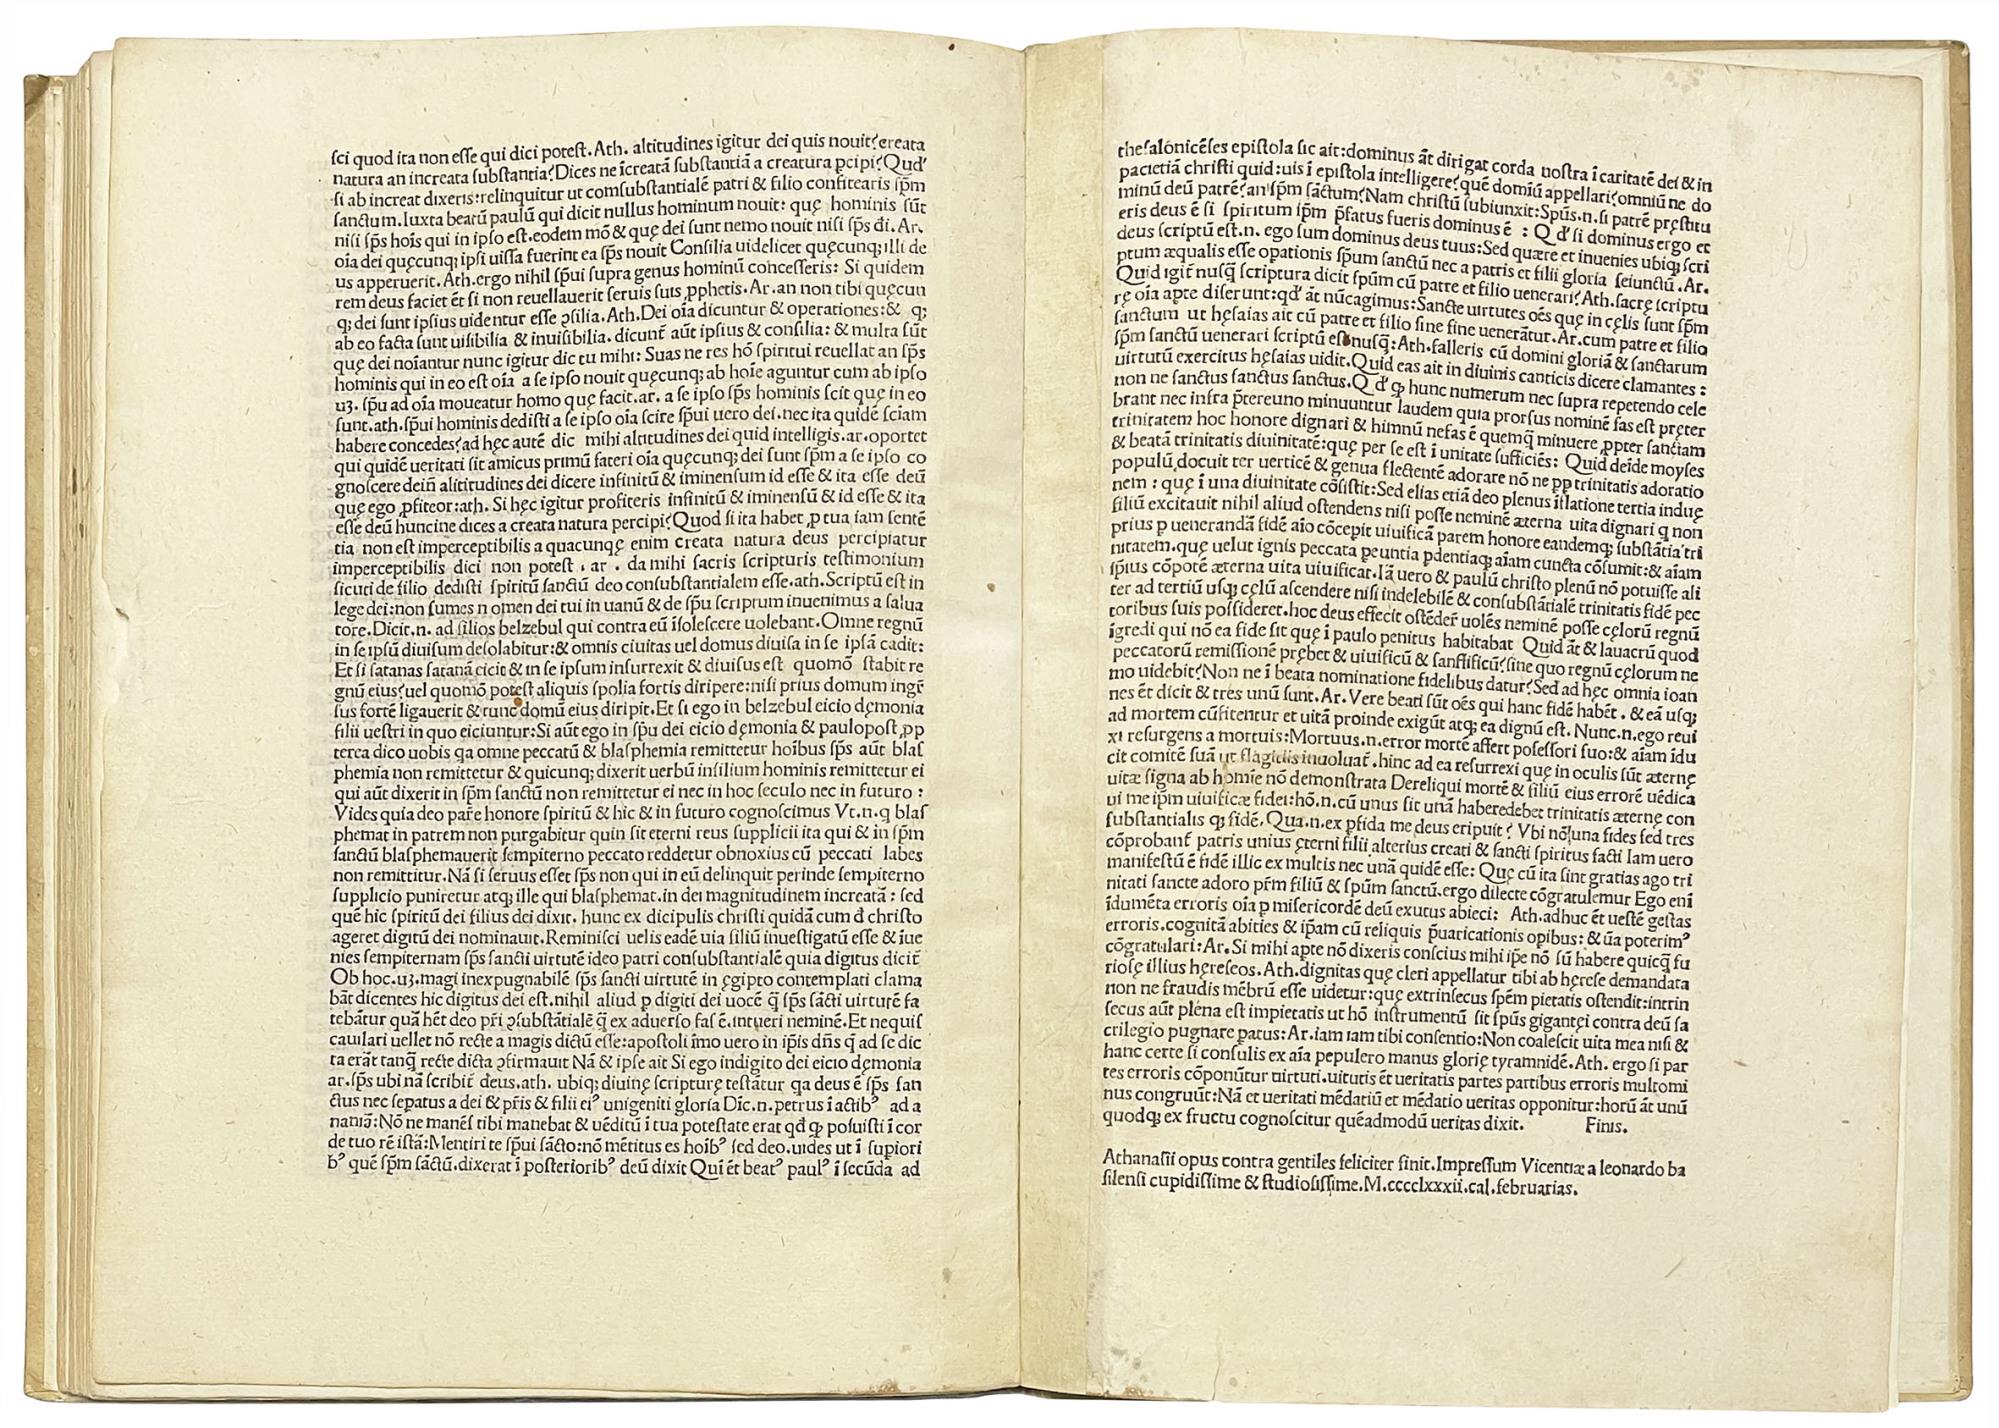 sci quod ita non esse qui dici potest.Ath. altitudines igitur dei quis nouit?creata
natura an increata substantia?Dices ne īcreatā substantiā a creatura pcipi?Qud'
si ab increat dixeris:relinquitur ut comsubstantialē patri & filio confitearis spm̄
sanctum.Iuxta beatū paulū qui dicit nullus hominum nouit: quę hominis sūt
nisi sp̄s hoīs qui in ipso est.eodem mō & quę dei sunt nemo nouit nisi sp̄s đi. Ar.
oīa dei quęcunq; ipsi uissa fuerint ea sp̄s nouit Consilia uidelicet quęcunq; illi de
us apperuerit. Ath.ergo nihil sp̄ui supra genus hominū concesseris: Si quidem
rem deus faciet ēt si non reuellauerit seruis suis ꝓphetis. Ar.an non tibi quęcun
q; dei sunt ipsius uidentur esse ɔsilia. Ath.Dei oīa dicuntur & operationes:& q;
ab eo facta sunt uisibilia & inuisibilia. dicunt̄ aūt ipsius & consilia: & multa sūt
quę dei noīantur nunc igitur dic tu mihi: Suas ne res hō spiritui reuellat an sp̄s
hominis qui in eo est oīa a se ipso nouit quęcunq; ab hoīe aguntur cum ab ipso
uꝫ. sp̄u ad oīa moueatur homo quę facit.ar. a se ipso sp̄s hominis scit quę in eo
sunt.ath.sp̄ui hominis dedisti a se ipso oīa scire sp̄ui uero dei.nec ita quidē sciam
habere concedes?ad hęc autē dic mihi altitudines dei quid intelligis.ar.oportet
qui quidē ueritati sit amicus primū fateri oīa quęcunq; dei sunt spm̄ a se ipso co
gnoscere dein̄ alititudines dei dicere infinitū & iminensum id esse & ita esse deū
quę ego ꝓfiteor:ath. Si hęc igitur profiteris infinitū & iminensū & id esse & ita
esse deū huncine dices a creata natura percipi?Quod si ita habet ꝓ tua iam sentē
tia non est imperceptibilis a quacunqę enim creata natura deus percipiatur
imperceptibilis dici non potest . ar . da mihi sacris scripturis testimonium
sicuti de filio dedisti spiritū sanctū deo consubstantialem esse.ath.Scriptū est in
lege dei:non sumes n omen dei tui in uanū & de sp̄u scriptum inuenimus a salua
tore.Dicit.n. ad silios belzebul qui contra eū īsolescere uolebant.Omne regnū
in se ipsū diuisum desolabitur:& omnis ciuitas uel domus diuisa in se ipsā cadit:
Et si satanas satanā cicit & in se ipsum insurrexit & diuisus est quomō stabit re
gnū eius?uel quomō potest aliquis spolia fortis diripere:nisi prius domum ingr̄
sus fortē ligauerit & tunc domū eius diripit.Et si ego in belzebul eicio dęmonia
filii uestri in quo eiciuntur:Si aūt ego in sp̄u dei eicio dęmonia & paulopost ꝓp
terea dico uobis qa omne peccatū & blasphemia remittetur hoībus sp̄s aūt blas
phemia non remittetur & quicunq; dixerit uerbū insilium hominis remittetur ei
qui aūt dixerit in spm̄ sanctū non remittetur ei nec in hoc seculo nec in futuro :
Vides quia deo patr̄e honore spiritū & hic & in futuro cognoscimus Vt.n.q blas
phemat in patrem non purgabitur quin sit eterni reus supplicii ita qui & in spm̄
sanctū blasphemauerit sempiterno peccato reddetur obnoxius cū peccati labes
non remittitur.Nā si seruus esset sp̄s non qui in eū delinquit perinde sempiterno
supplicio puniretur atq; ille qui blasphemat.in dei magnitudinem increatā : sed
quē hic spiritū dei filius dei dixit. hunc ex dicipulis christi quidā cum đ christo
ageret digitū dei nominauit.Reminisci uelis eadē uia siliū inuestigatū esse & īue
nies sempiternam sp̄s sancti uirtutē ideo patri consubstantialē quia digitus dicit̄
Ob hoc.uꝫ.magi inexpugnabilē sp̄s sancti uirtutē in ęgipto contemplati clama
bāt dicentes hic digitus dei est.nihil aliud p digiti dei uocē q̄ sp̄s sācti uirtutē fa
tebātur quā hēt deo pr̄i ɔsubstātialē q̄ ex aduerso fas ē.intueri neminē.Et nequis
cauilari uellet nō recte a magis dictū esse:apostoli īmo uero in ip̄is dn̄s q̄ ad se dic
ta erāt tanq̄ recte dicta ɔfirmauit Nā & ipse ait Si ego indigito dei eicio dęmonia
ar.sp̄s ubi nā scribit̄ deus.ath. ubiq; diuinę scripturę testātur qa deus ē sp̄s san
ctus nec sepatus a dei & pr̄is & filii eiꝰ unigeniti gloria Dīc.n.petrus ī actibꝰ ad a
naniā:Nō ne manēs tibi manebat & uēditū ī tua potestate erat qđ ꝙ posuisti ī cor
de tuo rē istā:Mentiri te sp̄ui sācto:nō mētitus es hoībꝰ sed deo.uides ut ī supiori
bꝰ quē spm̄ sāctū.dixerat ī posterioribꝰ deū dixit Qui ēt beatꝰ paulꝰ ī secūda ad
thesalonicēses epistola sic ait:dominus āt dirigat corda uostra ī caritatē dei & in
pacietiā christi quid:uis ī epistola intelligere?quē domiū appellari?omniū ne do
minū deū patrē?an spm̄ sāctum?Nam christū subiunxit:Spūs.n.si patrē pręstitu
eris deus ē si spiritum ipm̄ p̄fatus fueris dominus ē : Qđ si dominus ergo et
deus scriptū est.n. ego sum dominus deus tuus:Sed quære et inuenies ubiq; scri
ptum æqualis esse opationis spūm sanctū nec a patris et filii gloria seiunctū.Ar.
Quid igit̄ nusq̄ scriptura dicit spūm cū patre et filio uenerari?Ath.sacrę scriptu
rę oīa apte diserunt:qđ āt nūcagimus:Sancte uirtutes oēs quę in cęlis sunt spm̄
sanctum ut hęsaias ait cū patre et filio sine fine uenerātur.Ar.cum patre et filio
spm̄ sanctū uenerari scriptū est nusq̄:Ath.falleris cū domini gloriā & sanctarum
uirtutū exercitus hęsaias uidit.Quid eas ait in diuinis canticis dicere clamantes :
non ne sanctus sanctus sanctus.Qđ ꝙ hunc numerum nec supra repetendo cele
brant nec infra p̄tereuno minuuntur laudem quia prorsus nominē fas est pręter
trinitatem hoc honore dignari & himnū nefas ē quemq̄ minuere ꝓpter sanctiam
& beatā trinitatis diuinitatē:quę per se est ī unitate sufficiēs: Quid deīde moyses
populū docuit ter uerticē & genua flectentē adorare nō ne ꝓp trinitatis adoratio
nem : quę ī una diuinitate cōsistit:Sed elias etiā deo plenus īflatione tertia induę
filiū excitauit nihil aliud ostendens nisi posse neminē æterna uita dignari q non
prius p uenerandā fidē aīo cōcepit uiuificā parem honore eandemq; substātia tri
nitatem.quę uelut ignis peccata peuntia pdentiaq; aīam cuncta cōsumit:& aīam
ip̄ius cōpotē æterna uita uiuificat.Iā uero & paulū christo plenū nō potuisse ali
ter ad tertiū usq; cęlū ascendere nisi indelebilē & consubstātialē trinitatis fidē pec
toribus suis possideret.hoc deus effecit ostēder̄ uolēs neminē posse cęlorū regnū
īgredi qui nō ea fide sit quę ī paulo penitus habitabat Quid āt & lauacrū quod
peccatorū remissionē prębet & uiuificū & sanftificū?sine quo regnū cęlorum ne
mo uidebit?Non ne ī beata nominatione fidelibus datur?Sed ad hęc omnia ioan
nes ēt dicit & tres unū sunt. Ar. Vere beati sūt oēs qui hanc fidē habēt . & eā usq;
ad mortem cūfitentur et uitā proinde exigūt atq; ea dignū est. Nunc.n.ego reui
xi resurgens a mortuis:Mortuus.n.error mortē affert posessori suo:& aīam īdu
cit comitē suā ut flagitiis inuoluat̄.hinc ad ea resurrexi quę in oculis sūt æternę
uitæ signa ab homie nō demonstrata Dereliqui mortē & siliū eius errorē uēdica
ui me ipm̄ uiuificæ fidei:hō.n.cū unus sit unā haberedebet trinitatis æternę con
substantialis q; fidē. Qua.n.ex pfida me deus eripuit? Vbi nō una fides sed tres
cōprobant̄ patris unius ęterni filii alterius creati & sancti spiritus facti Iam uero
manifestū ē fidē illic ex multis nec unā quidē esse: Quę cū ita sint gratias ago tri
nitati sancte adoro pr̄m filiū & spūm sanctū.ergo dilecte cōgratulemur Ego enī
īdumēta erroris oīa p misericordē deū exutus abieci: Ath.adhuc ēt uestē gestas
erroris.cognitā abities & ip̄am cū reliquis p̄uaricationis opibus: & ūa poterimꝰ
cōgratulari:Ar. Si mihi apte nō dixeris conscius mihi ip̄e nō sū habere quicq̄ fu
riosę illius hęreseos.Ath.dignitas quę cleri appellatur tibi ab hęrese demandata
non ne fraudis mēbrū esse uidetur:quę extrinsecus spēm pietatis ostendit:intrin
secus aūt plena est impietatis ut hō instrumentū sit spūs gigantęi contra deū sa
crilegio pugnare patus: Ar.iam iam tibi consentio:Non coalescit uita mea nisi &
hanc certe si consulis ex aīa pepulero manus glorię tyramnidē.Ath. ergo si par
tes erroris cōponūtur uirtuti.uitutis ēt ueritatis partes partibus erroris multomi
nus congruūt:Nā et ueritati mēdatiū et mēdatio ueritas opponitur:horū āt unū
quodq; ex fructu cognoscitur quēadmodū ueritas dixit. Finis.
Athanasii opus contra gentiles feliciter finit.Impressum Vicentiæ a leonardo ba
silensi cupidissime & studiosissime.M.cccclxxxii.cal.februarias.